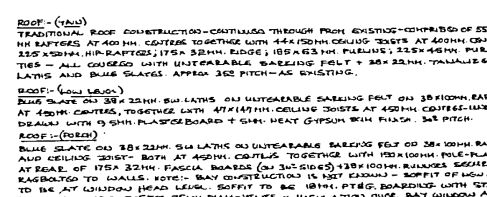 ROOF:- (MAIN)
TRADITIONAL ROOF CONSTRUCTION - CONTINUED THROUGH FROM EXISTING - COMPRISED OF 55
MM RAFTERS AT 400 MM. CENTRES TOGETHER WITH 44 X 150 MM. CEILING JOISTS AT 400 MM. CEN
225 X 50 MM. HIP-RAFTERS; 175 X 32 MM. RIDGE; 185 X 63 MM. PURLINS; 225 X 46 MM. PUR
TIES - ALL COVERED WITH UNTEARABLE SARKING FELT + 38 X 22 MM. TANALIZE
LATHS AND BLUE SLATES. APPROX 35° PITCH - AS EXISTING.
ROOF:- (LOW LEVEL)
BLUE SLATE ON 38 X 22 MM. SW. LATHS ON UNTEARABLE SARKING FELT ON 38 X 100 MM. RAF
AT 450 MM. CENTRES, TOGETHER WITH 47 X 147 MM. CEILING JOISTS AT 450 MM CENTRES - UNDE
DRAWN WITH 9.5 MM. PLASTERBOARD + 5 MM. NEAT GYPSUM SKIM FINISH. 30° PITCH.
ROOF:- (PORCH)
BLUE SLATE ON 38 X 22 MM. SW LATHS ON UNTEARABLE SARKING FELT ON 38 X 100 MM. RA
AND CEILING JOIST - BOTH AT 450 MM. CENTRES TOGETHER WITH 150 X 100 MM. POLE-PLA
AT REAR OF 175 X 32 MM. FASCIA BOARDS (ON 3 NO. SIDES) + 38 X 100 MM. RUNNERS SECUR
RAGBOLTED TO WALLS. NOTE:- BAY CONSTRUCTION IS NOT KNOWN - SOFFIT OF NEW
TO BE AT WINDOW HEAD LEVEL. SOFFIT TO BE 18 MM. PT&G. BOARDING WITH ST
OVER BAY WINDOW A